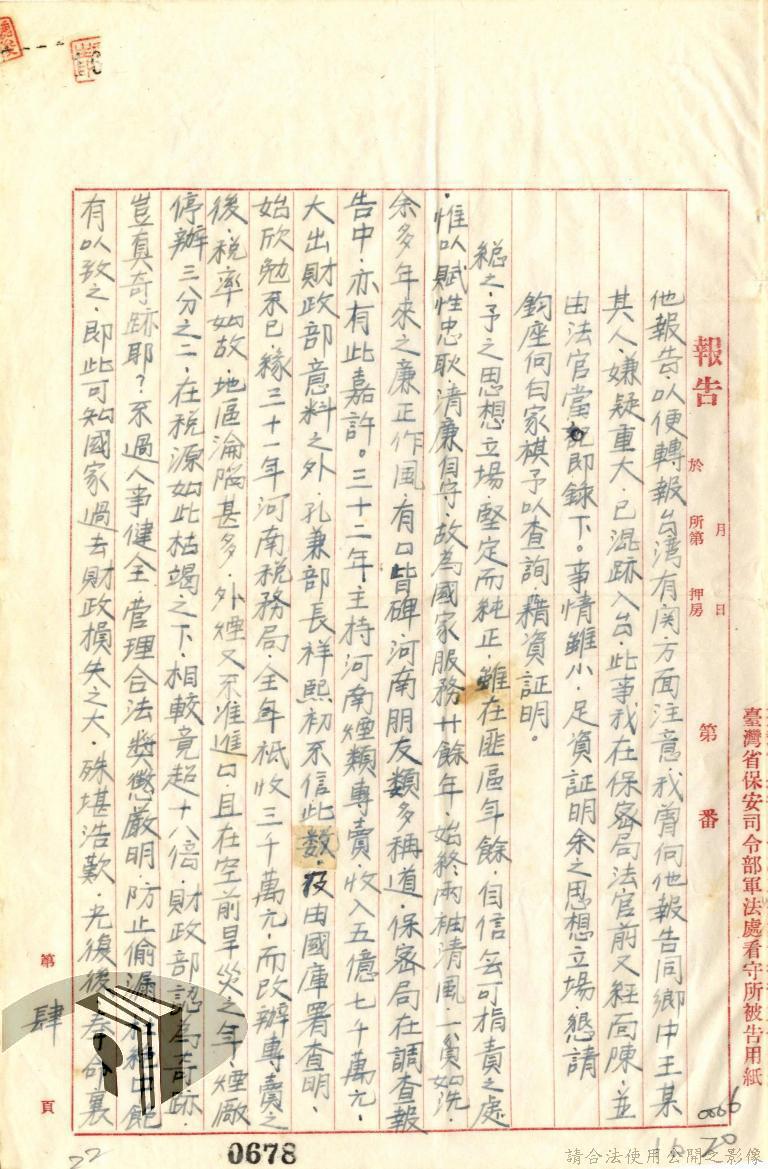 臺灣省保安司令部軍法處看守所被告用紙
報告
於 所第 押房
月 日
第 番
他報告以便轉報台湾有関方面注意我曾向他報告同鄉中王某
其人嫌疑重大已混跡入台此事我在保密局法官前又経面陳並
由法官當即錄下。事情雖小足資証明余之思想立場懇請
鈞座向白家祺予以查詢藉資証明。
總之予之思想立場堅定而純正雖在匪區年餘自信無可指責之處
惟以賦性忠耿清廉自守故為國家服務廿餘年始終兩袖清風一貧如洗
余多年來之廉正作風有口皆碑河南朋友類多稱道保密局在調查報
告中亦有此嘉許。三十二年主持河南煙類專賣收入五億七千萬元
大出財政部意料之外孔兼部長祥熙初不信此數及由國庫署查明
始欣勉不已緣三十一年河南稅務局全年祗收三千萬元而改辦專賣之
後稅率如故地區淪陷甚多外煙又不准進口且在空前旱災之年煙廠
停辦三分之二在稅源如此枯竭之下相較竟超十八倍財政部認為奇跡
豈真奇跡耶？不過人事健全管理合法獎懲嚴明防止偷漏 中飽
有以致之即此可知國家過去財政損失之大殊堪浩歎光復後奉命裏
第 肆 頁
0678
0066
16 20
22
請合法使用公開之影像